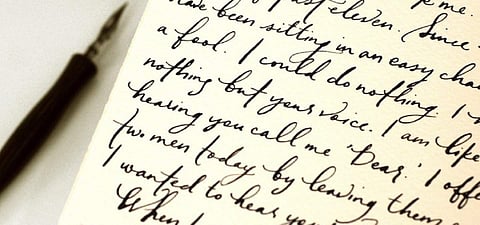 me.
past eleven. Since
have been sitting in an easy chai
a fool. I could do nothing. I
nothing but your voice. I am like
hearing you call me 'Dear.' I offe
two men today by leaving them
I wanted to hear you
When I